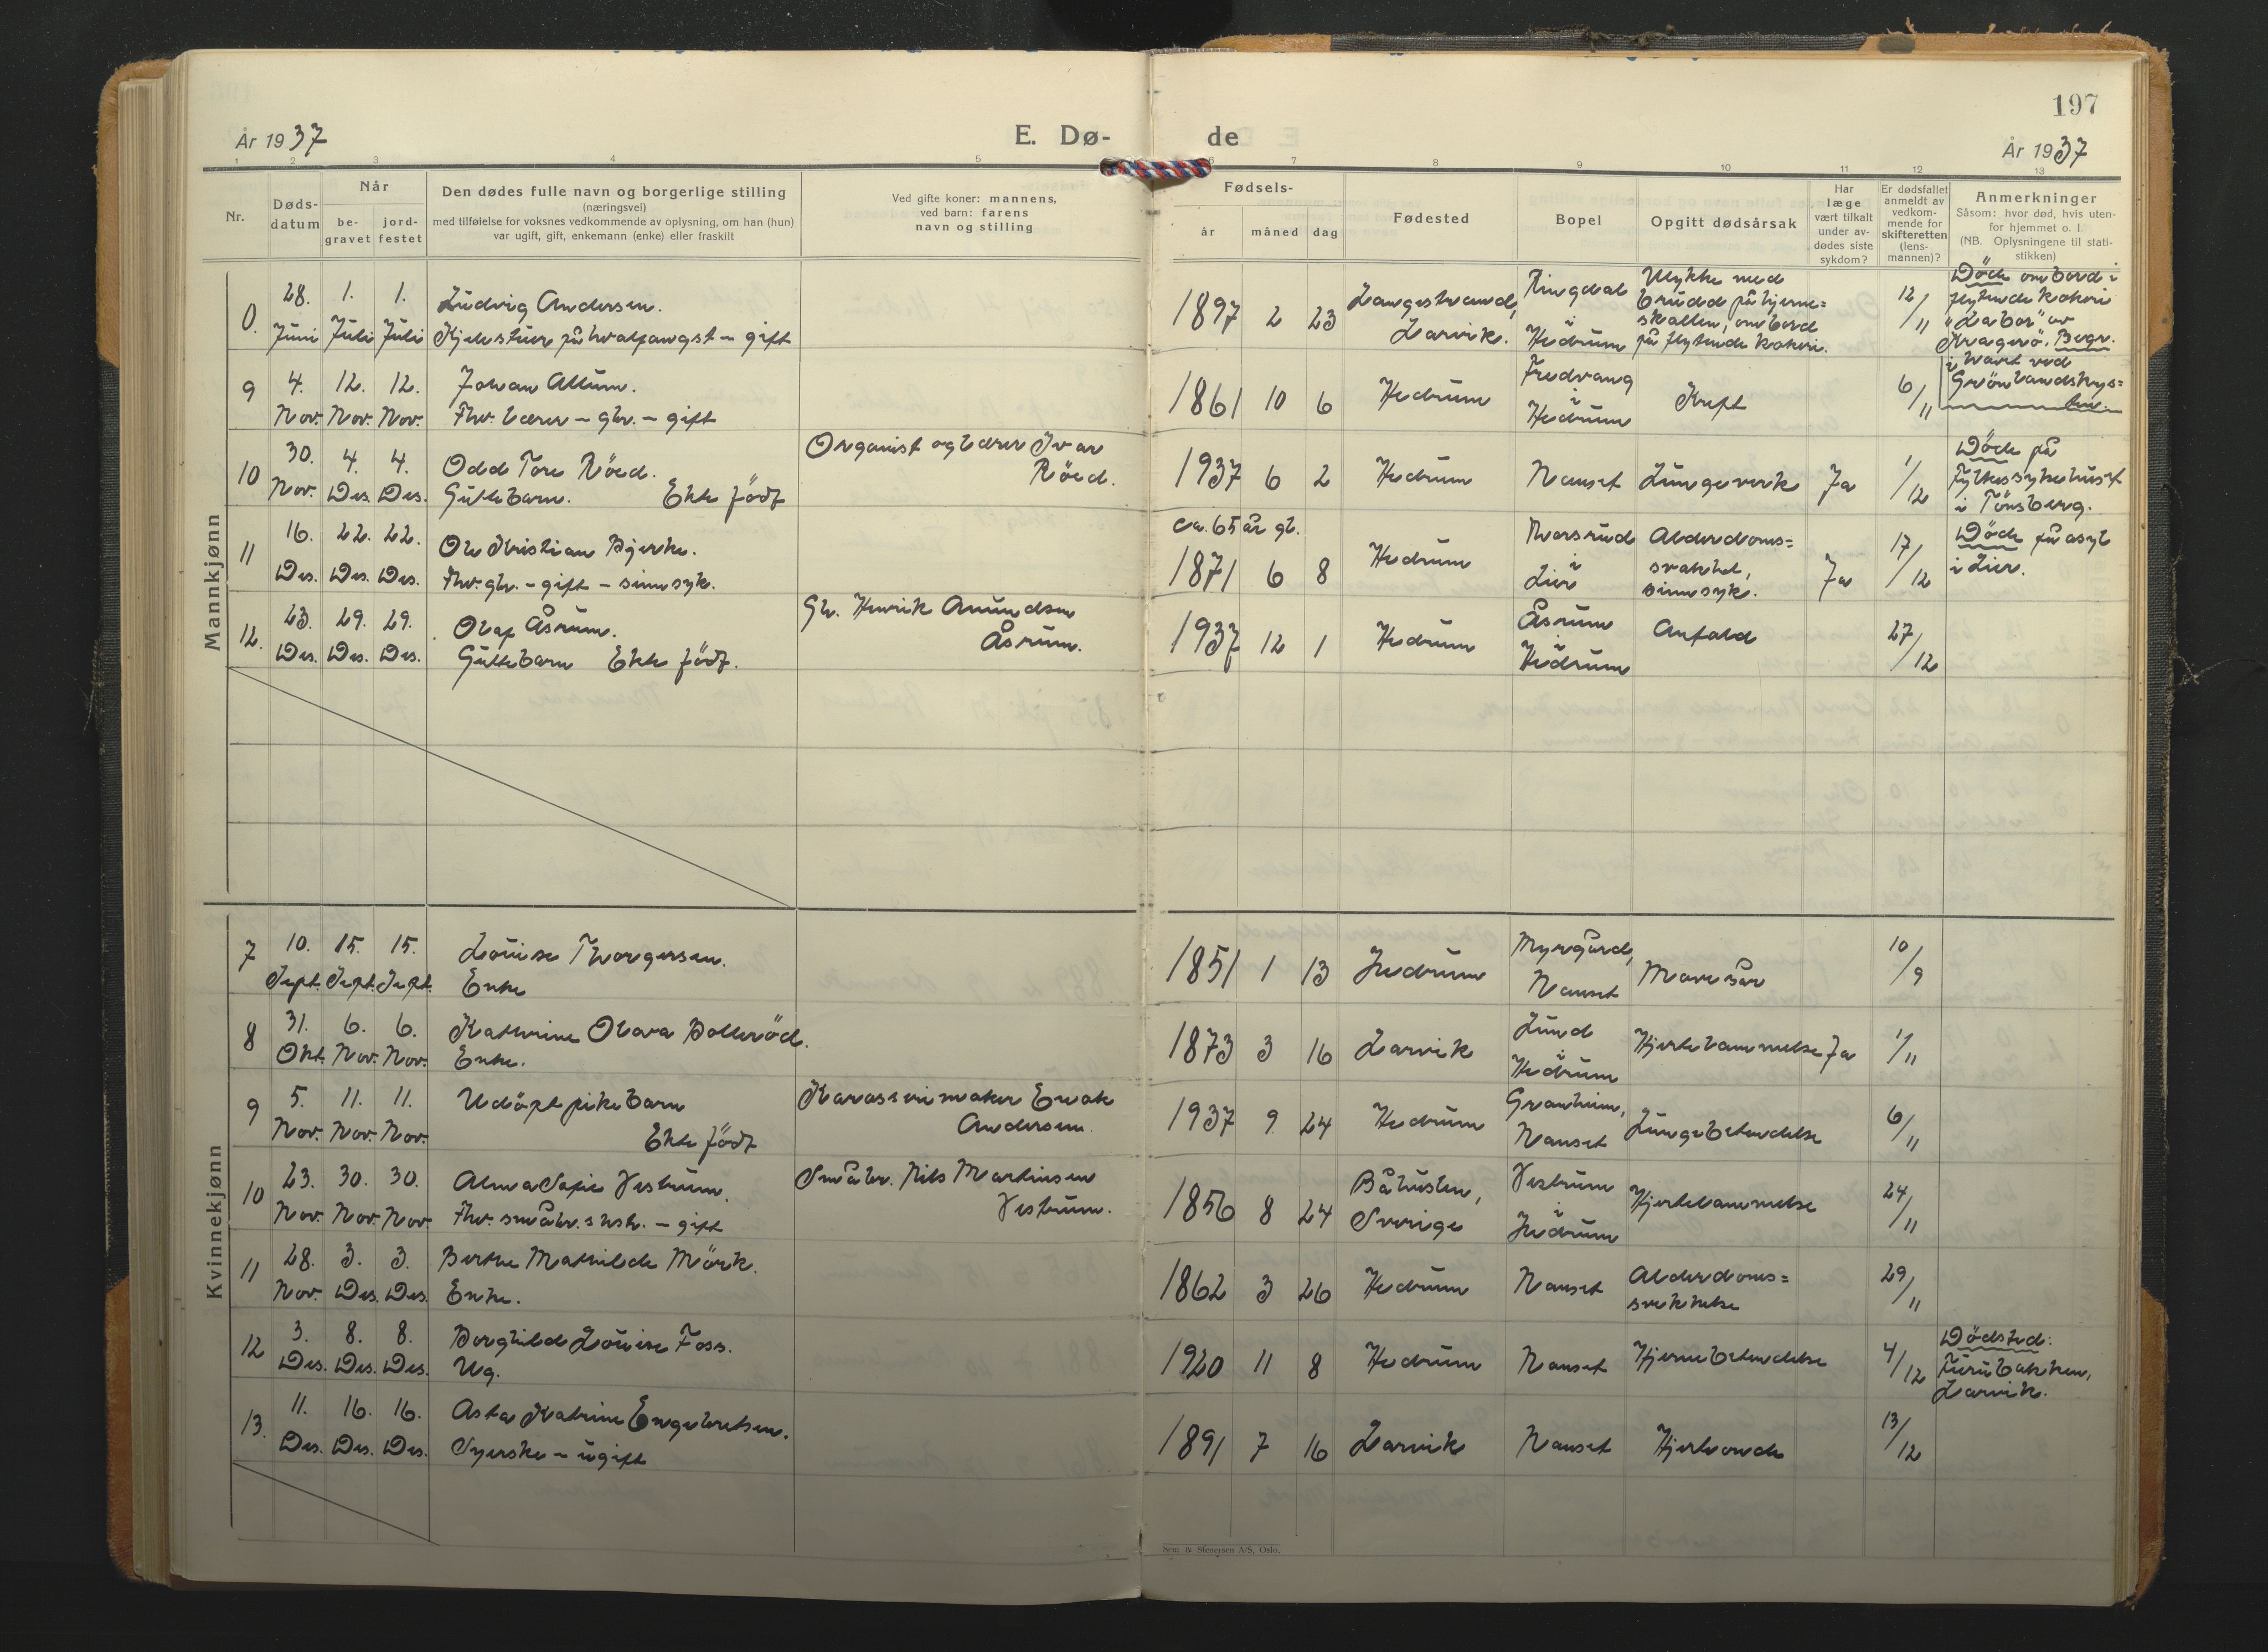 197
År 1937
E. Dø-
de
År 1937
1 2 3 4 5 6 7 8 9 10 11 12 13
Nr.
Døds-
datum
Når
be-
gravet
jord-
festet
Den dødes fulle navn og borgerlige stilling
(næringsvei)
med tilføielse for voksnes vedkommende av oplysning, om han (hun)
var ugift, gift, enkemann (enke) eller fraskilt
Ved gifte koner: mannens,
ved barn: farens
navn og stilling
Fødsels-
år måned dag
Fødested
Bopel
Opgitt dødsårsak
Har
læge
vært tilkalt
under av-
dødes siste
sykdom?
Er dødsfallet
anmeldt av
vedkom-
mende for
skifteretten
(lens-
mannen)?
Anmerkninger
Såsom: hvor død, hvis uten-
for hjemmet o. l.
(NB. Oplysningene til stati-
stikken)
Mannkjønn
0. 28. Juni 1. Juli 1. Juli
Ludvig Andersen.
Kjelestuer på hvalfangst – gift
1897 2 23
Langestrand,
Larvik.
Ringdal
i
Hedrum
Ulykke med
brudd på hjerne=
skallen, ombord
på flytende kokeri.
12/11
Döde ombord i
flytende kokeri
"Labor" av
Kragerö. Begr.
i havet ved
Grönlandskys=
ten.
9 4. Nov. 12. Nov. 12. Nov.
Johan Allum.
Fhv. lærer – gbr. – gift
1861 10 6
Hedrum
Fredvang
i
Hedrum
Kreft
6/11
10 30. Nov. 4. Des. 4. Des.
Odd Tore Röed.
Guttebarn. Ekte födt
Organist og lærer Ivar
Röed.
1937 6 2
Hedrum
Nanset
Lungeverk
Ja
1/12
Döde på
Fylkessykehuset
i Tönsberg.
11 16. Des. 22. Des. 22. Des.
Ole Kristian Bjerke.
Fhv. gbr. – gift – sinnsyk.
ca. 65 år gl.
1871 6 8
Hedrum
Thorsrud
i
Lier
Alderdoms=
svakhet,
sinnsyk.
Ja
17/12
Döde på asyl
i Lier.
12. 23. Des. 29. Des. 29. Des.
Olaf Åsrum.
Guttebarn Ekte födt.
Gbr. Henrik Amundsen
Åsrum.
1937 12 1
Hedrum
Åsrum
i
Hedrum
Anfald
27/12
Kvinnekjønn
7 10. Sept. 15. Sept. 15. Sept.
Louise Thorgersen.
Enke
1851 1 13
Hedrum
Myrgård,
Nanset
Mavesår
10/9
8 31. Okt. 6. Nov. 6. Nov.
Kathrine Olava Bolleröd.
Enke.
1873 3 16
Larvik
Lund
i
Hedrum
Hjertelammelse
Ja
1/11
9 5. Nov. 11. Nov. 11. Nov.
Udöpt pikebarn
Ekte födt
Karosserimaker
Andersen.
1937 9 24
Hedrum
Granheim,
Nanset
Lungebetendelse
6/11
10 23. Nov. 30. Nov. 30. Nov.
Alma Sofie Vestrum.
Fhv. småbr.s hstr. – gift
Småbr. Nils Martinsen
Vestrum.
1856 8 24
Båhuslen,
Sverige
Vestrum
i
Hedrum
Hjertelammelse
24/11
11 28. Nov. 3. Des. 3. Des.
Berthe Mathilde Mörk.
Enke.
1862 3 26
Hedrum
Nanset
Alderdoms=
svekkelse
29/11
12 3. Des. 8. Des. 8. Des.
Borghild Louise Foss.
Ug.
1920 11 8
Hedrum
Nanset
Hjernebetendelse
4/12
Dödsted:
Furubakken,
Larvik.
13. 11. Des. 16. Des. 16. Des.
Asta Katrine Engebretsen.
Syerske – ugift
1891 7 16
Larvik
Nanset
Hjerteonde
13/12
Sem & Stenersen A/S, Oslo.